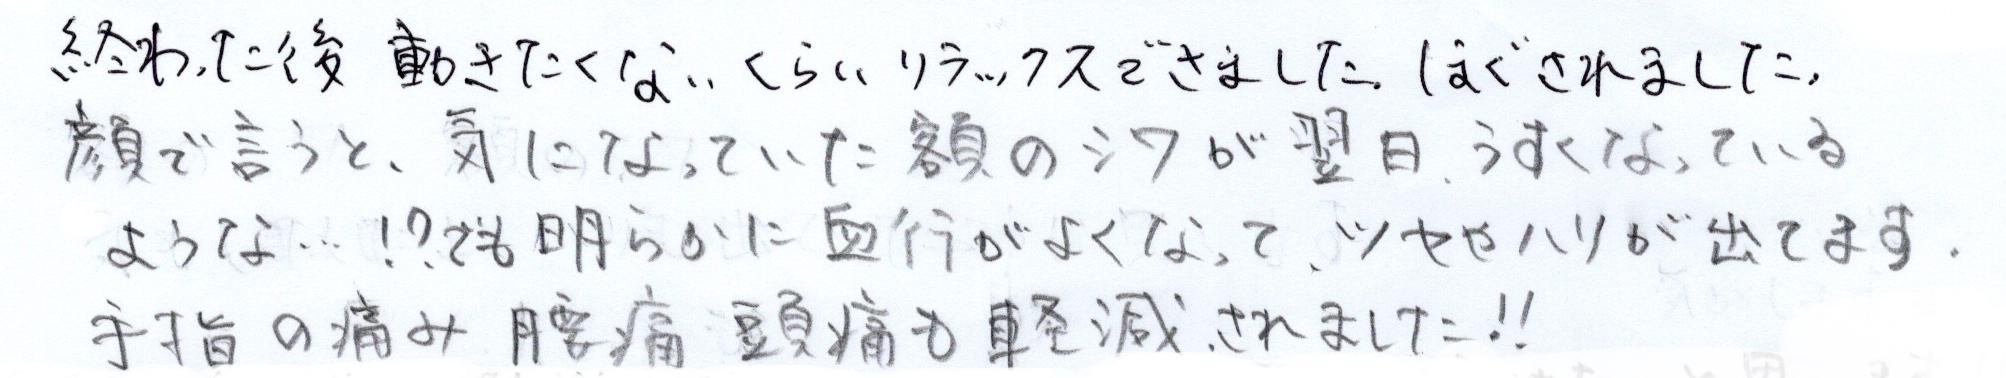 終わった後 動きたくないくらいリラックスできました。ほぐされました。
顔で言うと、気になっていた額のシワが翌日、うすくなっている
ような…!?でも明らかに血行がよくなって、ツヤやハリが出てます.
手指の痛み 腰痛 頭痛も軽減されました!!